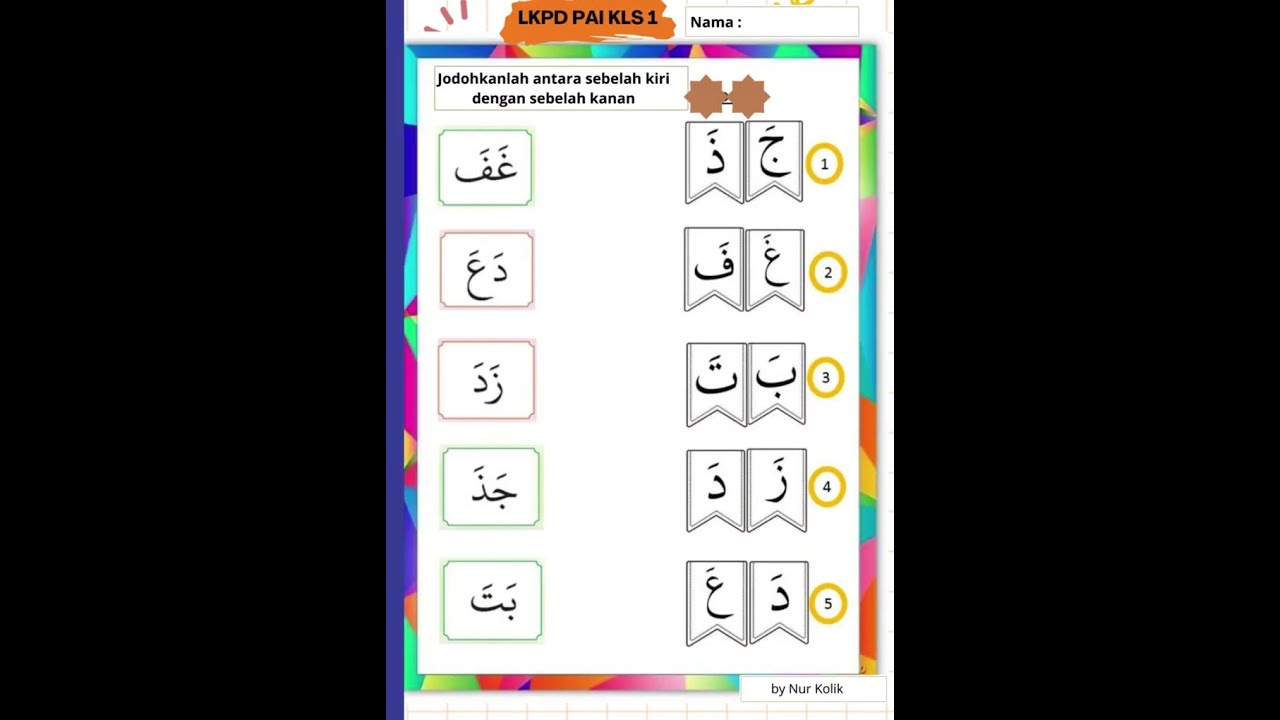 LKPD PAI KLS 1
Nama :
Jodohkanlah antara sebelah kiri
dengan sebelah kanan
غَفَ
جَ ذَ 1
دَعَ
غَ فَ 2
زَدَ
بَ تَ 3
جَذَ
زَ دَ 4
بَتَ
دَ عَ 5
by Nur Kolik